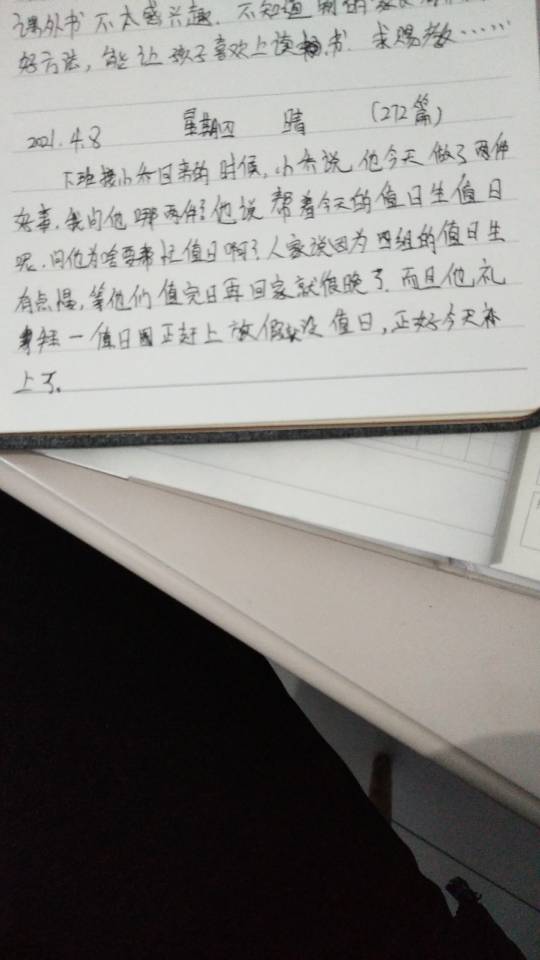 课外书不太感兴趣.不知道别的家长
好方法,能让孩子喜欢上读书.求赐教……
2021.4.8 星期四 晴 (272篇)
下班接小乔回来的时候,小乔说,他今天做了两件
好事.我问他哪两件?他说帮着今天的值日生值日
呢.问他为啥要帮忙值日啊?人家说因为四组的值日生
有点慢,等他们值完日再回家就很晚了.而且他礼
拜一值日因正赶上放假没值日,正好今天补
上了.